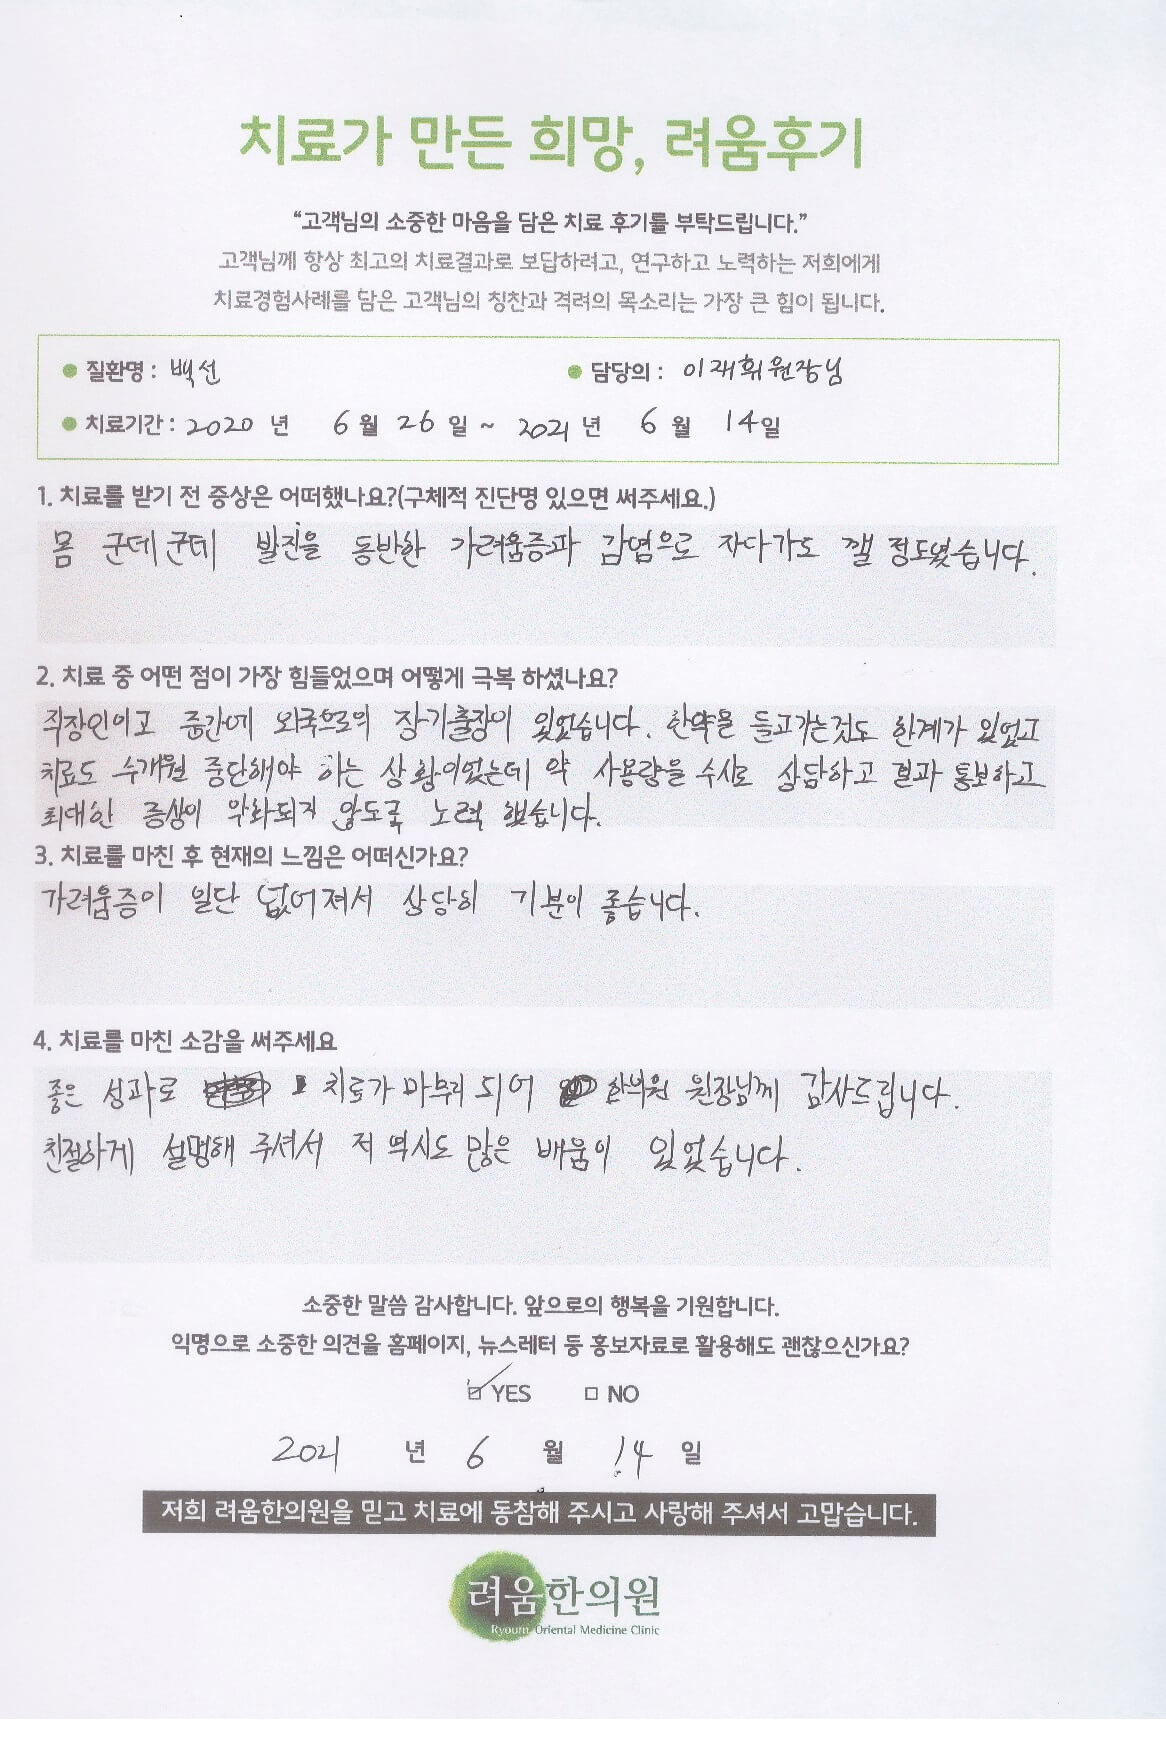 치료가 만든 희망, 려움후기
“고객님의 소중한 마음을 담은 치료 후기를 부탁드립니다.”
고객님께 항상 최고의 치료결과로 보답하려고, 연구하고 노력하는 저희에게
치료경험사례를 담은 고객님의 칭찬과 격려의 목소리는 가장 큰 힘이 됩니다.
● 질환명 : 백선 ● 담당의 : 이재휘원장님
● 치료기간 : 2020 년 6 월 26 일 ~ 2021 년 6 월 14 일
1. 치료를 받기 전 증상은 어떠했나요?(구체적 진단명 있으면 써주세요.)
몸 군데군데 발진을 동반한 가려움증과 감염으로 자다가도 깰 정도였습니다.
2. 치료 중 어떤 점이 가장 힘들었으며 어떻게 극복 하셨나요?
직장인이고 중간에 외국으로의 장기출장이 있었습니다. 한약을 들고가는것도 한계가 있었고
치료도 수개월 중단해야 하는 상황이었는데 약 사용량을 수시로 상담하고 결과 통보하고
최대한 증상이 악화되지 않도록 노력 했습니다.
3. 치료를 마친 후 현재의 느낌은 어떠신가요?
가려움증이 일단 없어져서 상당히 기분이 좋습니다.
4. 치료를 마친 소감을 써주세요
좋은 성과로 치료가 마무리 되어 한의원 원장님께 감사드립니다.
친절하게 설명해 주셔서 저 역시도 많은 배움이 있었습니다.
소중한 말씀 감사합니다. 앞으로의 행복을 기원합니다.
익명으로 소중한 의견을 홈페이지, 뉴스레터 등 홍보자료로 활용해도 괜찮으신가요?
☑ YES □ NO
2021 년 6 월 14 일
저희 려움한의원을 믿고 치료에 동참해 주시고 사랑해 주셔서 고맙습니다.
려움한의원
Ryoum Oriental Medicine Clinic